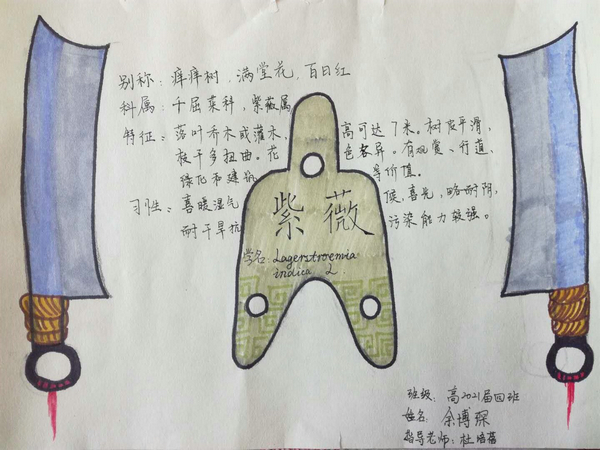 别称：痒痒树、满堂花，百日红
科属：千屈菜科，紫薇属
特征：落叶乔木或灌木、高可达7米。树皮平滑，
枝干多扭曲。花色各异。有观赏、行道，
绿化和建筑等价值。
习性：喜暖湿气候，喜光，略耐阴，
耐干旱抗污染能力较强。
紫薇
学名：Lagerstroemia
indica L.
班级：高2021届四班
姓名：余博琛
指导老师：杜